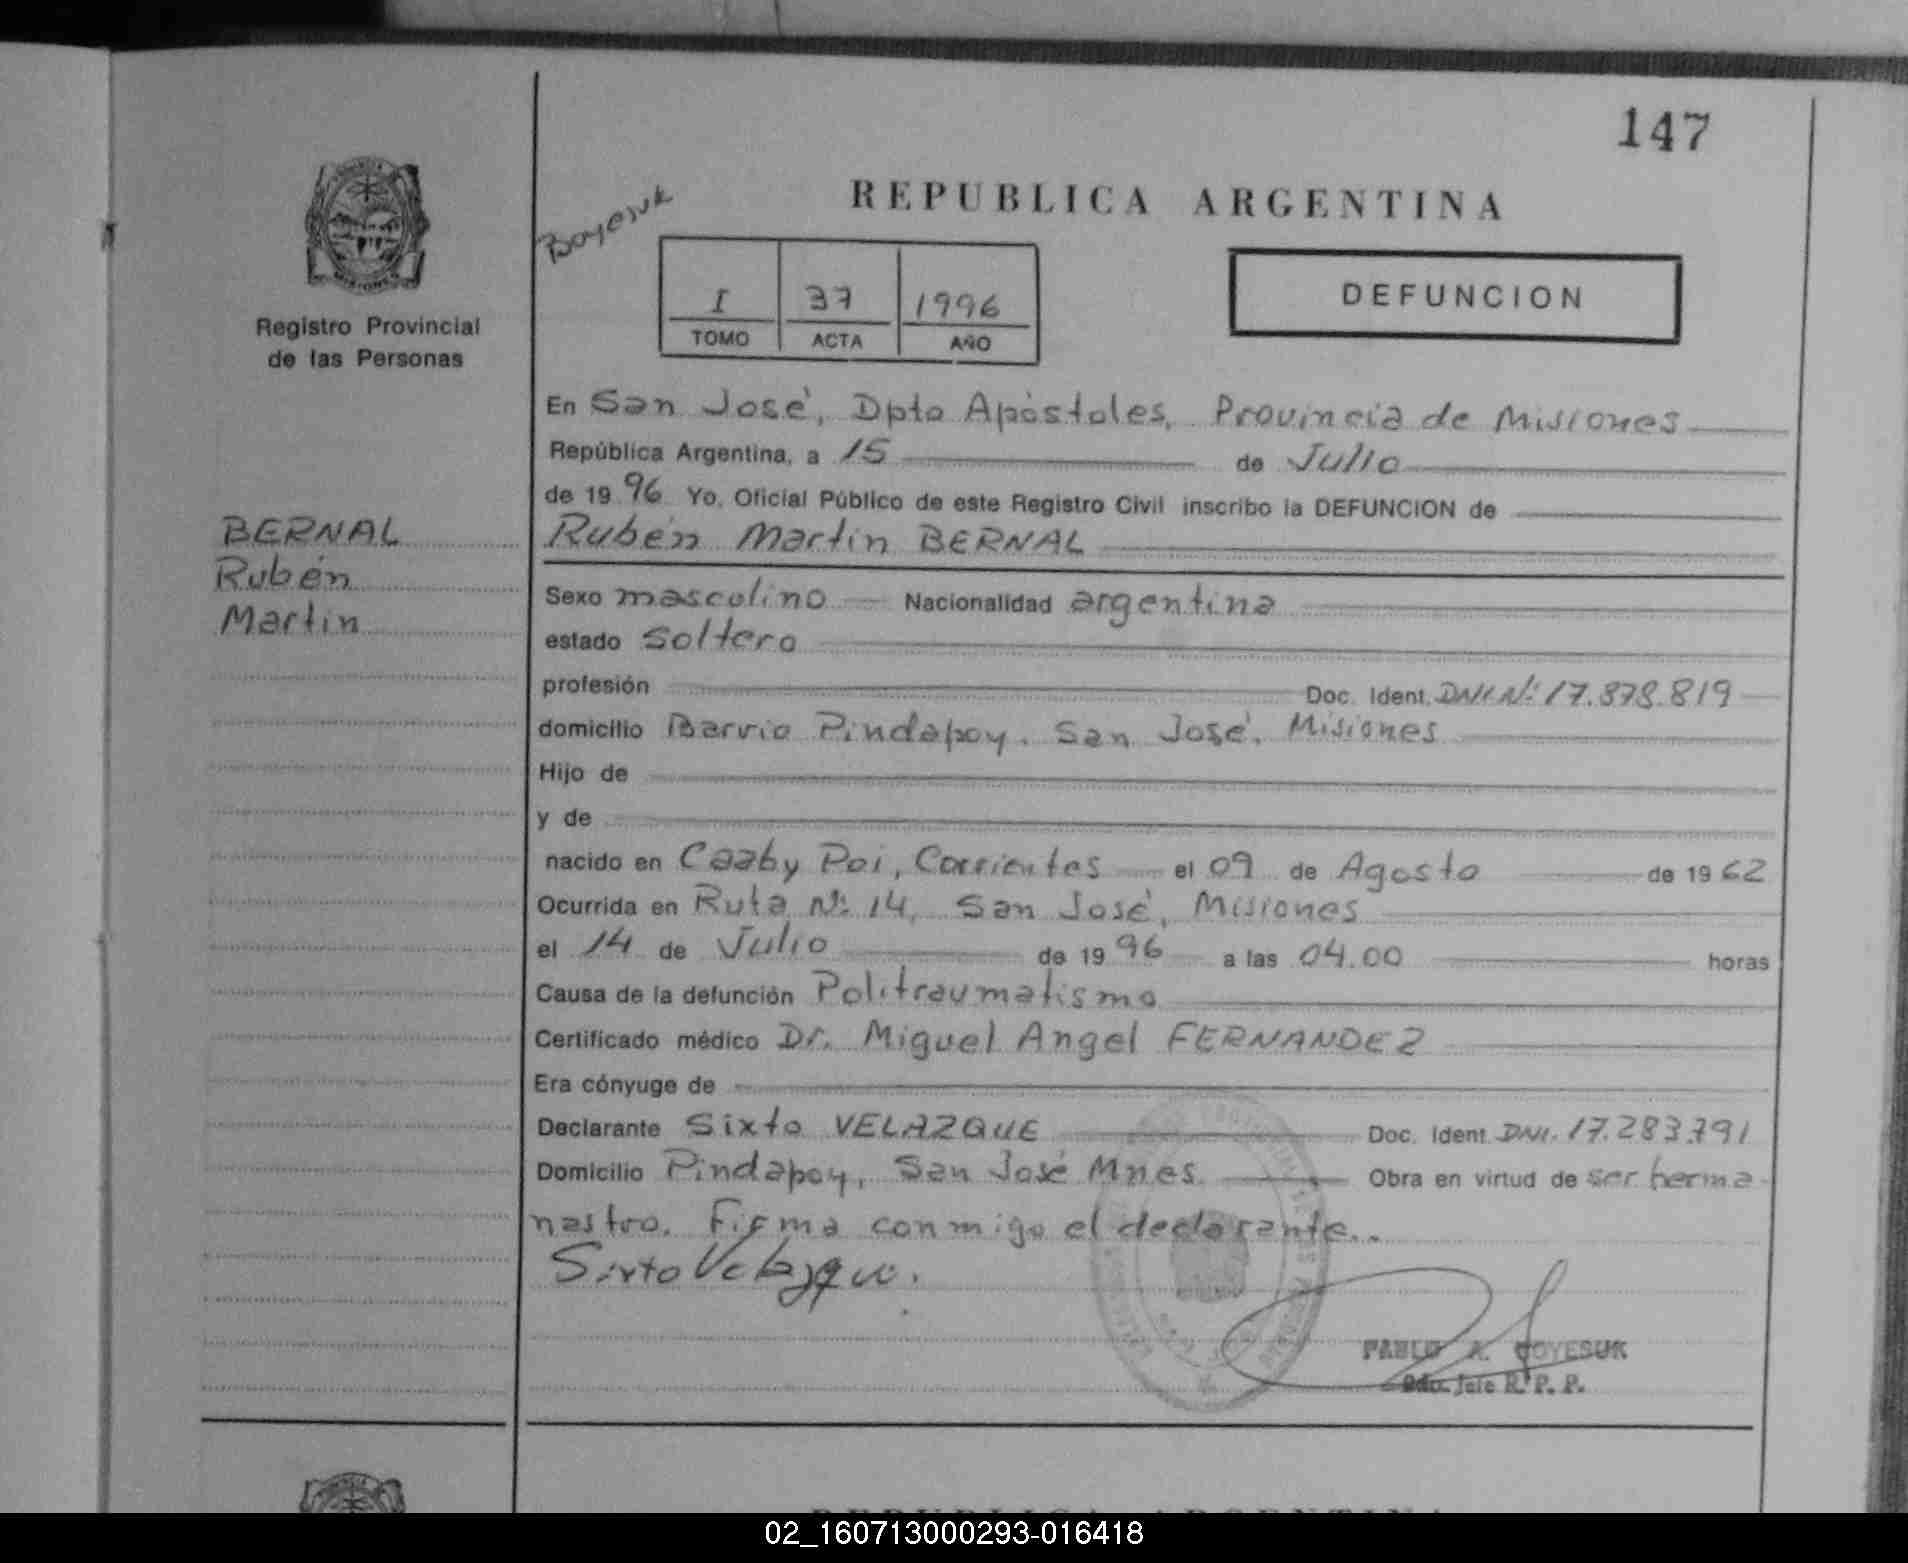 147
REPUBLICA ARGENTINA
Boyesuk
I 37 1996
TOMO ACTA AÑO
DEFUNCION
Registro Provincial
de las Personas
BERNAL
Rubén
Martin
En San José, Dpto Apóstoles, Provincia de Misiones
República Argentina, a 15 de Julio
de 1996 Yo, Oficial Público de este Registro Civil inscribo la DEFUNCION de
Rubén Martin BERNAL
Sexo masculino Nacionalidad argentina
estado Soltero
profesión Doc. Ident. DNI.Nº 17.878.819
domicilio Barrio Pindapoy. San José. Misiones
Hijo de
y de
nacido en Caaby Poi, Corrientes el 09 de Agosto de 1962
Ocurrida en Ruta Nº 14, San José, Misiones
el 14 de Julio de 1996 a las 04.00 horas
Causa de la defunción Politraumatismo
Certificado médico Dr. Miguel Angel FERNANDEZ
Era cónyuge de
Declarante Sixto VELAZQUE Doc. Ident. DNI. 17.283.791
Domicilio Pindapoy, San José Mnes. Obra en virtud de ser herma-
nastro. Firma conmigo el declarante..
Sixto Velazque.
PABLO A. BOYESUK
Jefe R. P. P.
REPUBLICA ARGENTINA
02_160713000293-016418